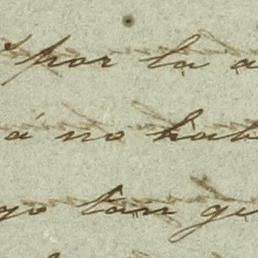 por la a
á no hab
go tan gu